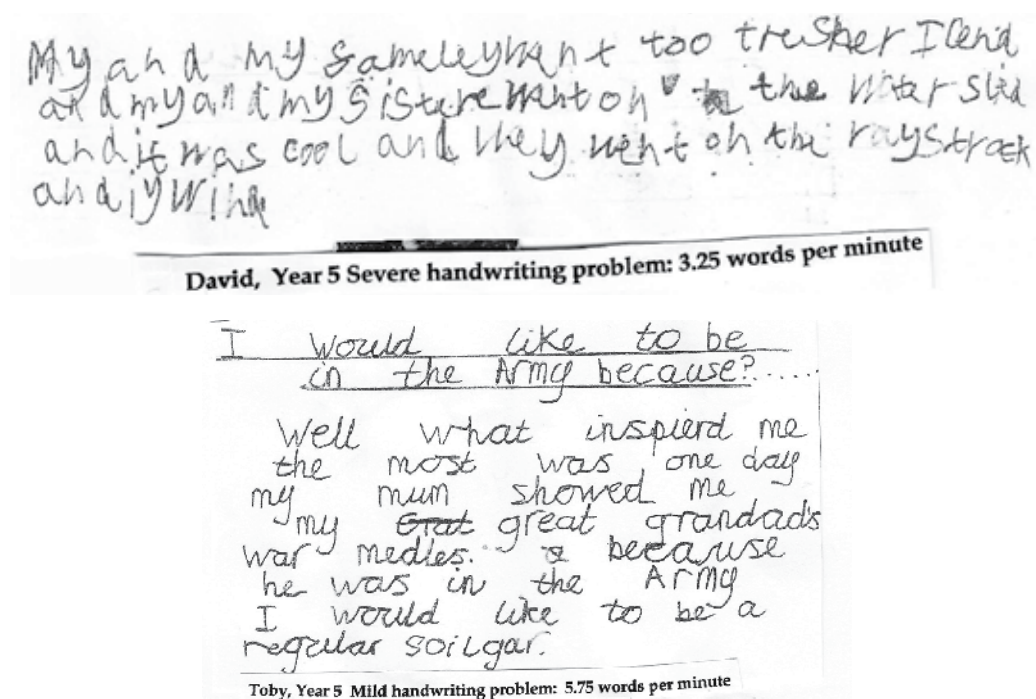 My and my fameley want too tresher Ilend
and my and my sistere want on the water slid
and it was cool and they went on the raystrack
and iy wine
David, Year 5 Severe handwriting problem: 3.25 words per minute
I would like to be
in the Army because?......
Well what inspierd me
the most was one day
my mum showed me
my Grat great grandad's
war medles. because
he was in the Army
I would like to be a
regular soilgar.
Toby, Year 5 Mild handwriting problem: 5.75 words per minute